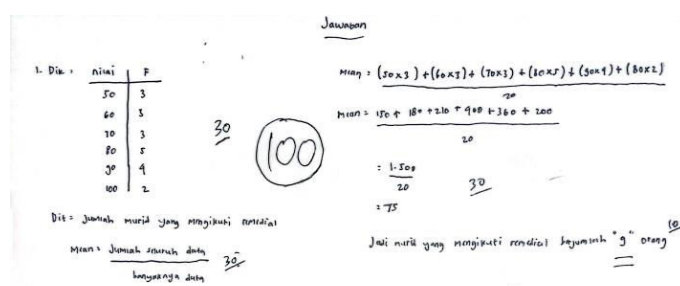 Jawaban
1. Dik : nilai F
50 3
60 3
70 3
80 5
90 4
100 2
30
100
Dit = Jumlah murid yang mengikuti remedial
Mean = Jumlah seluruh data
banyaknya data
30
Mean = (50x3) + (60x3) + (70x3) + (80x5) + (90x4) + (80x2)
20
Mean = 150 + 180 + 210 + 400 + 360 + 200
20
= 1.500
20
30
= 75
Jadi murid yang mengikuti remedial berjumlah "9" orang
10